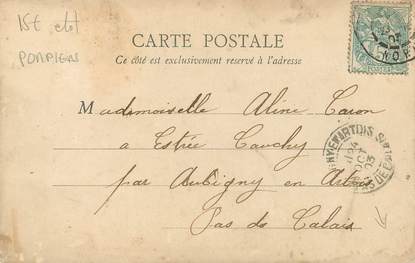 15€ etat
POMPIERS
CARTE POSTALE
Ce côté est exclusivement reservé à l'adresse
Mademoiselle Aline Caron
à Estrée Cauchy
par Aubigny en Artois
Pas de Calais